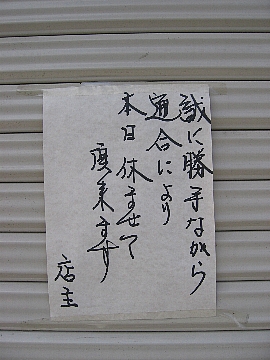 誠に勝手ながら
通合により
本日休ませて
ます
店主